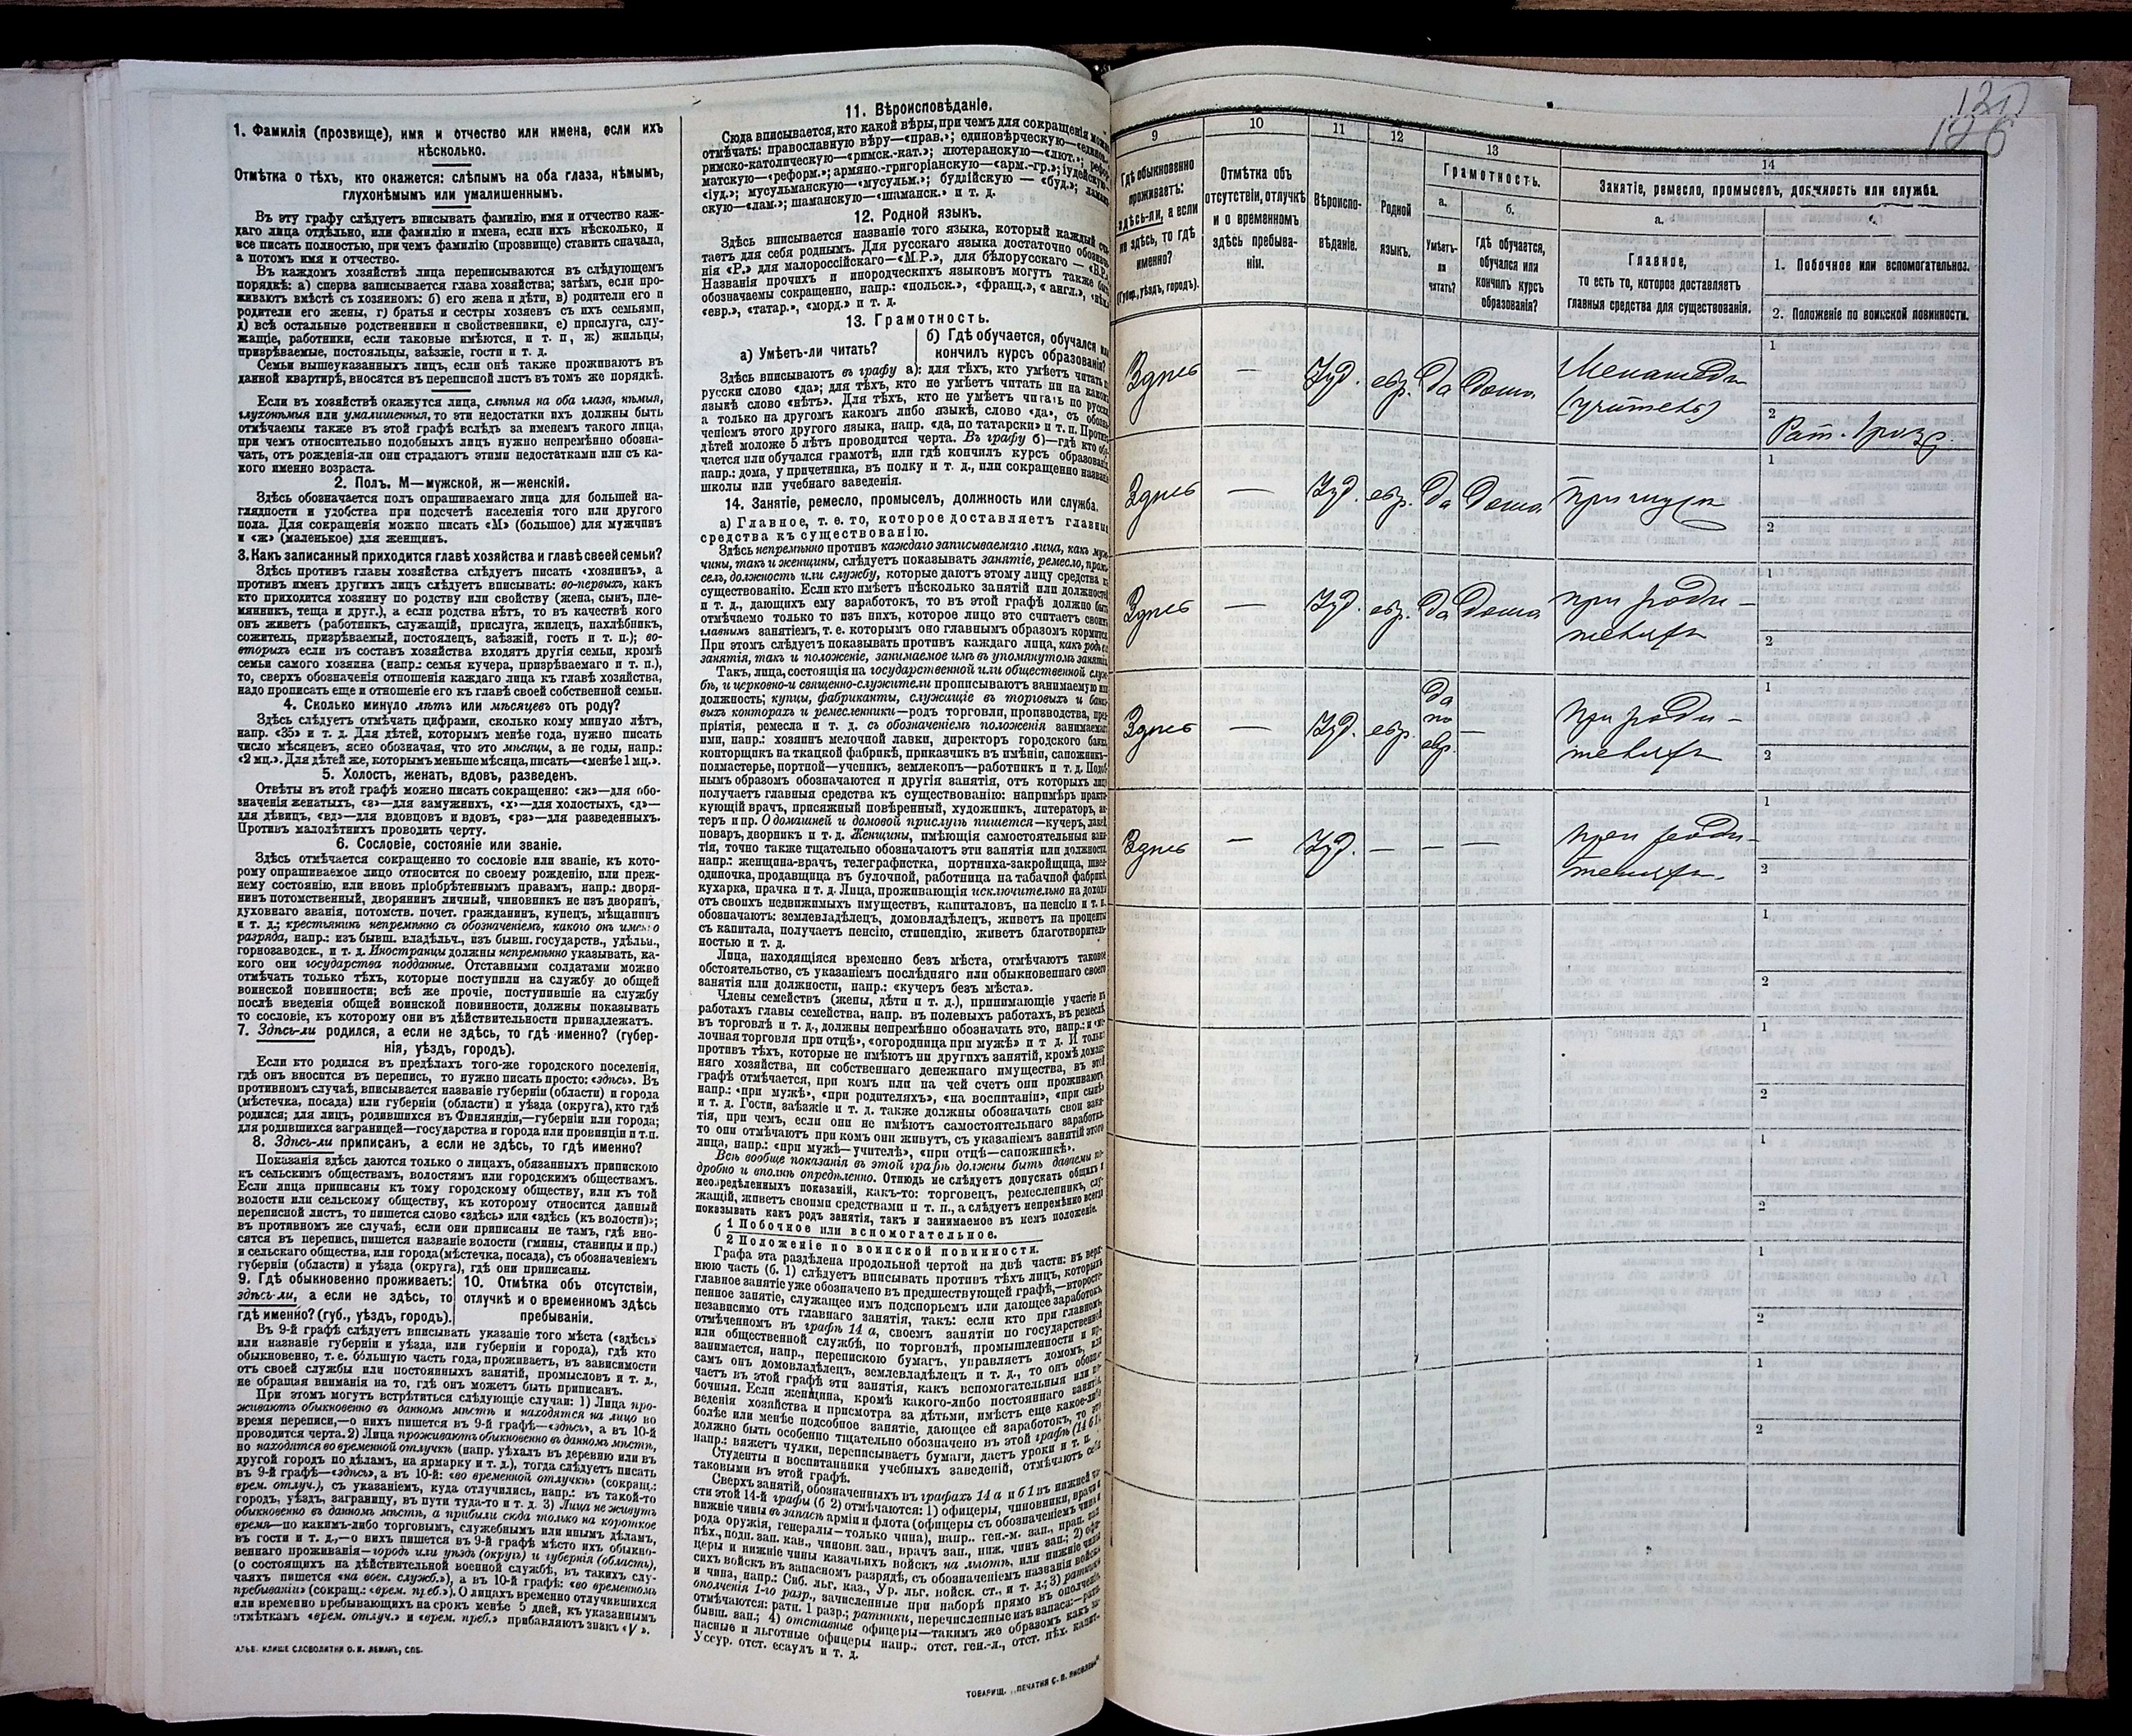 1. Фамилія (прозвище), имя и отчество или имена, если ихъ
нѣсколько.
Отмѣтка о тѣхъ, кто окажется: слѣпымъ на оба глаза, нѣмымъ,
глухонѣмымъ или умалишеннымъ.
Въ эту графу слѣдуетъ вписывать фамилію, имя и отчество каж-
даго лица отдѣльно, или фамилію и имена, если ихъ нѣсколько, и
все писать полностью, при чемъ фамилію (прозвище) ставить сначала,
а потомъ имя и отчество.
Въ каждомъ хозяйствѣ лица переписываются въ слѣдующемъ
порядкѣ: а) сперва записывается глава хозяйства; затѣмъ, если про-
живаютъ вмѣстѣ съ хозяиномъ: б) его жена и дѣти, в) родители его и
родители его жены, г) братья и сестры хозяевъ съ ихъ семьями,
д) всѣ остальные родственники и свойственники, е) прислуга, слу-
жащіе, работники, если таковые имѣются, и т. п, ж) жильцы,
призрѣваемые, постояльцы, заѣзжіе, гости и т. д.
Семьи вышеуказанныхъ лицъ, если онѣ также проживаютъ въ
данной квартирѣ, вносятся въ переписной листъ въ томъ же порядкѣ.
Если въ хозяйствѣ окажутся лица, слѣпыя на оба глаза, нѣмыя,
глухонѣмыя или умалишенныя, то эти недостатки ихъ должны быть
отмѣчаемы также въ этой графѣ вслѣдъ за именемъ такого лица,
при чемъ относительно подобныхъ лицъ нужно непремѣнно обозна-
чать, отъ рожденія-ли они страдаютъ этими недостатками или съ ка-
кого именно возраста.
2. Полъ. М—мужской, ж—женскій.
Здѣсь обозначается полъ опрашиваемаго лица для большей на-
глядности и удобства при подсчетѣ населенія того или другого
пола. Для сокращенія можно писать «М» (большое) для мужчинъ
и «ж» (маленькое) для женщинъ.
3. Какъ записанный приходится главѣ хозяйства и главѣ своей семьи?
Здѣсь противъ главы хозяйства слѣдуетъ писать «хозяинъ», а
противъ именъ другихъ лицъ слѣдуетъ вписывать: во-первыхъ, какъ
кто приходится хозяину по родству или свойству (жена, сынъ, пле-
мянникъ, теща и друг.), а если родства нѣтъ, то въ качествѣ кого
онъ живетъ (работникъ, служащій, прислуга, жилецъ, нахлѣбникъ,
сожитель, призрѣваемый, постоялецъ, заѣзжій, гость и т. п.); во-
вторыхъ если въ составъ хозяйства входятъ другія семьи, кромѣ
семьи самого хозяина (напр.: семья кучера, призрѣваемаго и т. п.),
то, сверхъ обозначенія отношенія каждаго лица къ главѣ хозяйства,
надо прописать еще и отношеніе его къ главѣ своей собственной семьи.
4. Сколько минуло лѣтъ или мѣсяцевъ отъ роду?
Здѣсь слѣдуетъ отмѣчать цифрами, сколько кому минуло лѣтъ,
напр. «35» и т. д. Для дѣтей, которымъ менѣе года, нужно писать
число мѣсяцевъ, ясно обозначая, что это мѣсяцы, а не годы, напр.:
«2 мц.». Для дѣтей же, которымъ меньше мѣсяца, писать—«менѣе 1 мц.».
5. Холостъ, женатъ, вдовъ, разведенъ.
Отвѣты въ этой графѣ можно писать сокращенно: «ж»—для обо-
значенія женатыхъ, «з»—для замужнихъ, «х»—для холостыхъ, «д»—
для дѣвицъ, «вд»—для вдовцовъ и вдовъ, «рз»—для разведенныхъ.
Противъ малолѣтнихъ проводить черту.
6. Сословіе, состояніе или званіе.
Здѣсь отмѣчается сокращенно то сословіе или званіе, къ кото-
рому опрашиваемое лицо относится по своему рожденію, или преж-
нему состоянію, или вновь пріобрѣтеннымъ правамъ, напр.: дворя-
нинъ потомственный, дворянинъ личный, чиновникъ не изъ дворянъ,
духовнаго званія, потомств. почет. гражданинъ, купецъ, мѣщанинъ
и т. д.; крестьянинъ непремѣнно съ обозначеніемъ, какого онъ именно
разряда, напр.: изъ бывш. владѣльч., изъ бывш. государств., удѣльн.,
горнозаводск., и т. д. Иностранцы должны непремѣнно указывать, ка-
кого они государства подданные. Отставными солдатами можно
отмѣчать только тѣхъ, которые поступили на службу до общей
воинской повинности; всѣ же прочіе, поступившіе на службу
послѣ введенія общей воинской повинности, должны показывать
то сословіе, къ которому они въ дѣйствительности принадлежатъ.
7. Здѣсь-ли родился, а если не здѣсь, то гдѣ именно? (губер-
нія, уѣздъ, городъ).
Если кто родился въ предѣлахъ того-же городского поселенія,
гдѣ онъ вносится въ перепись, то нужно писать просто: «здѣсь». Въ
противномъ случаѣ, вписывается названіе губерніи (области) и города
(мѣстечка, посада) или губерніи (области) и уѣзда (округа), кто гдѣ
родился; для лицъ, родившихся въ Финляндіи,—губерніи или города;
для родившихся заграницей—государства и города или провинціи и т.п.
8. Здѣсь-ли приписанъ, а если не здѣсь, то гдѣ именно?
Показанія здѣсь даются только о лицахъ, обязанныхъ припискою
къ сельскимъ обществамъ, волостямъ или городскимъ обществамъ.
Если лица приписаны къ тому городскому обществу, или къ той
волости или сельскому обществу, къ которому относится данный
переписной листъ, то пишется слово «здѣсь» или «здѣсь (къ волости)»;
въ противномъ же случаѣ, если они приписаны не тамъ, гдѣ вно-
сятся въ перепись, пишется названіе волости (гмины, станицы и пр.)
и сельскаго общества, или города (мѣстечка, посада), съ обозначеніемъ
губерніи (области) и уѣзда (округа), гдѣ они приписаны.
9. Гдѣ обыкновенно проживаетъ:
здѣсь-ли, а если не здѣсь, то
гдѣ именно? (губ., уѣздъ, городъ).
10. Отмѣтка объ отсутствіи,
отлучкѣ и о временномъ здѣсь
пребываніи.
Въ 9-й графѣ слѣдуетъ вписывать указаніе того мѣста («здѣсь»
или названіе губерніи и уѣзда, или губерніи и города), гдѣ кто
обыкновенно, т. е. бóльшую часть года, проживаетъ, въ зависимости
отъ своей службы или постоянныхъ занятій, промысловъ и т. д.,
не обращая вниманія на то, гдѣ онъ можетъ быть приписанъ.
При этомъ могутъ встрѣтиться слѣдующіе случаи: 1) Лица про-
живаютъ обыкновенно въ данномъ мѣстѣ и находятся на лицо во
время переписи,—о нихъ пишется въ 9-й графѣ—«здѣсь», а въ 10-й
проводится черта. 2) Лица проживаютъ обыкновенно въ данномъ мѣстѣ,
но находятся во временной отлучкѣ (напр. уѣхалъ въ деревню или въ
другой городъ по дѣламъ, на ярмарку и т. д.), тогда слѣдуетъ писать
въ 9-й графѣ—«здѣсь», а въ 10-й: «во временной отлучкѣ» (сокращ.:
врем. отлуч.), съ указаніемъ, куда отлучились, напр.: въ такой-то
городъ, уѣздъ, заграницу, въ пути туда-то и т. д. 3) Лица не живутъ
обыкновенно въ данномъ мѣстѣ, а прибыли сюда только на короткое
время—по какимъ-либо торговымъ, служебнымъ или инымъ дѣламъ,
въ гости и т. д.,—о нихъ пишется въ 9-й графѣ мѣсто ихъ обыкно-
веннаго проживанія—городъ или уѣздъ (округъ) и губернія (область),
(о состоящихъ на дѣйствительной военной службѣ, въ такихъ слу-
чаяхъ пишется «на воен. служб.»), а въ 10-й графѣ: «во временномъ
пребываніи» (сокращ.: «врем. преб.»). О лицахъ временно отлучившихся
или временно пребывающихъ на срокъ менѣе 5 дней, къ указаннымъ
отмѣткамъ «врем. отлуч.» и «врем. преб.» прибавляютъ знакъ «V».
АЛЬБ. КЛИШЕ СЛОВОЛИТНИ О. И. ЛЕМАНЪ, СПБ.
11. Вѣроисповѣданіе.
Сюда вписывается, кто какой вѣры, при чемъ для сокращенія
отмѣчать: православную вѣру—«прав.»; единовѣрческую—
римско-католическую—«римск.-кат.»; лютеранскую—«лют.»;
матскую—«реформ.»; армяно-григоріанскую—«арм.-гр.»;
«іуд.»; мусульманскую—«мусульм.»; буддійскую — «буд.»;
скую—«лам.»; шаманскую—«шаманск.» и т. д.
12. Родной языкъ.
Здѣсь вписывается названіе того языка, который каждый
таетъ для себя роднымъ. Для русскаго языка достаточно
нія «Р.» для малороссійскаго—«М.Р.», для бѣлорусскаго — «Б.Р.»
Названія прочихъ и инородческихъ языковъ могутъ также
обозначаемы сокращенно, напр.: «польск.», «франц.», «англ.»,
«евр.», «татар.», «морд.» и т. д.
13. Грамотность.
а) Умѣетъ-ли читать?
б) Гдѣ обучается, обучался или
кончилъ курсъ образованія?
Здѣсь вписываютъ въ графу а): для тѣхъ, кто умѣетъ читать
русски слово «да»; для тѣхъ, кто не умѣетъ читать ни на какомъ
языкѣ слово «нѣтъ». Для тѣхъ, кто не умѣетъ читать по русски
а только на другомъ какомъ либо языкѣ, слово «да», съ обозна-
ченіемъ этого другого языка, напр. «да, по татарски» и т. п. Противъ
дѣтей моложе 5 лѣтъ проводится черта. Въ графу б)—гдѣ кто обу-
чается или обучался грамотѣ, или гдѣ кончилъ курсъ образованія,
напр.: дома, у причетника, въ полку и т. д., или сокращенно названіе
школы или учебнаго заведенія.
14. Занятіе, ремесло, промыселъ, должность или служба.
а) Главное, т. е. то, которое доставляетъ главныя
средства къ существованію.
Здѣсь непремѣнно противъ каждаго записываемаго лица, какъ муж-
чины, такъ и женщины, слѣдуетъ показывать занятіе, ремесло, промы-
селъ, должность или службу, которые даютъ этому лицу средства къ
существованію. Если кто имѣетъ нѣсколько занятій или должностей
и т. д., дающихъ ему заработокъ, то въ этой графѣ должно быть
отмѣчаемо только то изъ нихъ, которое лицо это считаетъ своимъ
главнымъ занятіемъ, т. е. которымъ оно главнымъ образомъ кормится.
При этомъ слѣдуетъ показывать противъ каждаго лица, какъ родъ его
занятія, такъ и положеніе, занимаемое имъ въ упомянутомъ занятіи.
Такъ, лица, состоящія на государственной или общественной служ-
бѣ, и церковно-и священно-служители прописываютъ занимаемую ими
должность; купцы, фабриканты, служащіе въ торговыхъ и банко-
выхъ конторахъ и ремесленники—родъ торговли, производства, пред-
пріятія, ремесла и т. д. съ обозначеніемъ положенія занимаемаго
ими, напр.: хозяинъ мелочной лавки, директоръ городского банка,
конторщикъ на ткацкой фабрикѣ, приказчикъ въ имѣніи, сапожникъ-
подмастерье, портной—ученикъ, землекопъ—работникъ и т. д. Подоб-
нымъ образомъ обозначаются и другія занятія, отъ которыхъ лица
получаетъ главныя средства къ существованію: напримѣръ практи-
кующій врачъ, присяжный повѣренный, художникъ, литераторъ, ак-
теръ и пр. О домашней и домовой прислугѣ пишется—кучеръ, лакей,
поваръ, дворникъ и т. д. Женщины, имѣющія самостоятельныя заня-
тія, точно также тщательно обозначаютъ эти занятія или должности,
напр.: женщина-врачъ, телеграфистка, портниха-закройщица, швея-
одиночка, продавщица въ булочной, работница на табачной фабрикѣ,
кухарка, прачка и т. д. Лица, проживающія исключительно на доходы
отъ своихъ недвижимыхъ имуществъ, капиталовъ, на пенсію и т. п.
обозначаютъ: землевладѣлецъ, домовладѣлецъ, живетъ на проценты
съ капитала, получаетъ пенсію, стипендію, живетъ благотворитель-
ностью и т. д.
Лица, находящіяся временно безъ мѣста, отмѣчаютъ таковое
обстоятельство, съ указаніемъ послѣдняго или обыкновеннаго своего
занятія или должности, напр.: «кучеръ безъ мѣста».
Члены семействъ (жены, дѣти и т. д.), принимающіе участіе въ
работахъ главы семейства, напр. въ полевыхъ работахъ, въ ремеслѣ,
въ торговлѣ и т. д., должны непремѣнно обозначать это, напр.: «ме-
лочная торговля при отцѣ», «огородница при мужѣ» и т д. И только
противъ тѣхъ, которые не имѣютъ ни другихъ занятій, кромѣ домаш-
няго хозяйства, ни собственнаго денежнаго имущества, въ этой
графѣ отмѣчается, при комъ или на чей счетъ они проживаютъ
напр.: «при мужѣ», «при родителяхъ», «на воспитаніи», «при сынѣ»
и т. д. Гости, заѣзжіе и т. д. также должны обозначать свои заня-
тія, при чемъ, если они не имѣютъ самостоятельнаго заработка,
то они отмѣчаютъ при комъ они живутъ, съ указаніемъ занятій этого
лица, напр.: «при мужѣ—учителѣ», «при отцѣ—сапожникѣ».
Всѣ вообще показанія въ этой графѣ должны быть даваемы по-
дробно и вполнѣ опредѣленно. Отнюдь не слѣдуетъ допускать общихъ и
неопредѣленныхъ показаній, какъ-то: торговецъ, ремесленникъ, слу-
жащій, живетъ своими средствами и т. п., а слѣдуетъ непремѣнно всегда
показывать какъ родъ занятія, такъ и занимаемое въ немъ положеніе.
б 1 Побочное или вспомогательное.
2 Положеніе по воинской повинности.
Графа эта раздѣлена продольной чертой на двѣ части: въ верх-
нюю часть (б. 1) слѣдуетъ вписывать противъ тѣхъ лицъ, которыхъ
главное занятіе уже обозначено въ предшествующей графѣ,—второсте-
пенное занятіе, служащее имъ подспорьемъ или дающее заработокъ,
независимо отъ главнаго занятія, такъ: если кто при главномъ,
отмѣченномъ въ графѣ 14 а, своемъ занятіи по государственной
или общественной службѣ, по торговлѣ, промышленности и пр.
занимается, напр., перепискою бумагъ, управляетъ домомъ, или
самъ онъ домовладѣлецъ, землевладѣлецъ и т. д., то онъ обозна-
чаетъ въ этой графѣ эти занятія, какъ вспомогательныя или по-
бочныя. Если женщина, кромѣ какого-либо постояннаго занятія,
веденія хозяйства и присмотра за дѣтьми, имѣетъ еще какое-либо
болѣе или менѣе подсобное занятіе, дающее ей заработокъ, то это
должно быть особенно тщательно обозначено въ этой графѣ (14 б 1),
напр.: вяжетъ чулки, переписываетъ бумаги, даетъ уроки и т. п.
Студенты и воспитанники учебныхъ заведеній, отмѣчаютъ себя
таковыми въ этой графѣ.
Сверхъ занятій, обозначенныхъ въ графахъ 14 а и б 1 въ нижней ча-
сти этой 14-й графы (б 2) отмѣчаются: 1) офицеры, чиновники, врачи и
нижніе чины въ запасѣ арміи и флота (офицеры съ обозначеніемъ чина и
рода оружія, генералы—только чина), напр.. ген.-м. зап., прап. зап.
пѣх., подп. зап. кав., чиновн. зап., врачъ зап., ниж. чинъ зап.; 2) офи-
церы и нижніе чины казачьихъ войскъ на льготѣ, или нижніе чины
сихъ войскъ въ запасномъ разрядѣ, съ обозначеніемъ названія войска
и чина, напр.: Сиб. льг. каз., Ур. льг. войск. ст., и т. д.; 3) ратники
ополченія 1-го разр., зачисленные при наборѣ прямо въ ополченіе,
отмѣчаются: ратн. 1 разр.; ратники, перечисленные изъ запаса:—ратн.
бывш. зап.; 4) отставные офицеры—такимъ же образомъ какъ за-
пасные и льготные офицеры напр.: отст. ген.-л., отст. пѣх. капит.,
Уссур. отст. есаулъ и т. д.
ТОВАРИЩ. „ПЕЧАТНЯ С. П. ЯКОВЛЕВА“
126
9 10 11 12 13 14
Гдѣ обыкновенно
проживаетъ:
здѣсь-ли, а если
не здѣсь, то гдѣ
именно?
(Губер., уѣздъ, городъ).
Отмѣтка объ
отсутствіи, отлучкѣ
и о временномъ
здѣсь пребыва-
ніи.
Вѣроиспо-
вѣданіе.
Родной
языкъ.
Грамотность.
а.
Умѣетъ-
ли
читать?
б.
гдѣ обучается,
обучался или
кончилъ курсъ
образованія?
Занятіе, ремесло, промыселъ, должность или служба.
а.
Главное,
то есть то, которое доставляетъ
главныя средства для существованія.
1. Побочное или вспомогательное.
2. Положеніе по воинской повинности.
Здѣсь — Іуд. евр. да дома Меламедъ
(учитель)
1
2
Рат. 1 раз.
Здѣсь — Іуд. евр. да дома При мужѣ
1
2
Здѣсь — Іуд. евр. да дома при роди-
теляхъ
1
2
Здѣсь — Іуд. евр. да
по
евр. — При роди-
теляхъ
1
2
Здѣсь — Іуд. — — — при роди-
теляхъ.
1
2
1
2
1
2
1
2
1
2
1
2